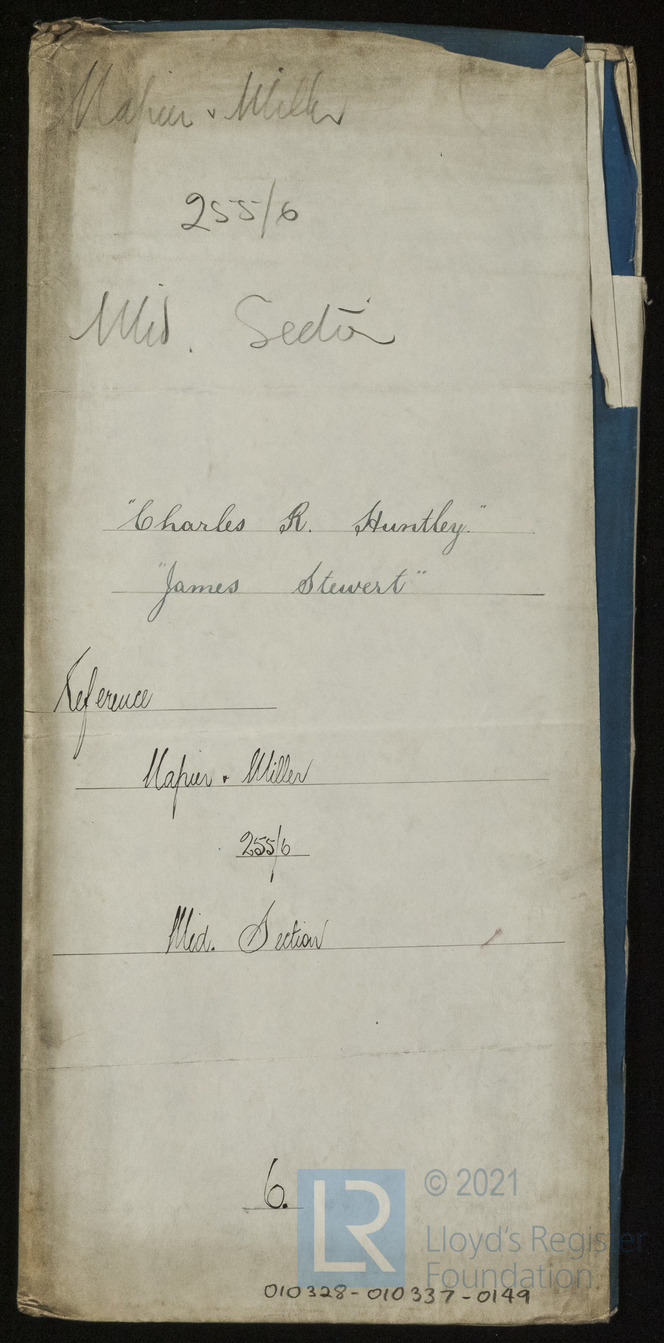 Napier & Miller
255/6
Mid. Section
"Charles R. Huntley."
"James Stewert"
Reference
Napier & Miller
255/6
Mid. Section
6.
LR
© 2021
Lloyd's Register
Foundation
010328-010337-0149